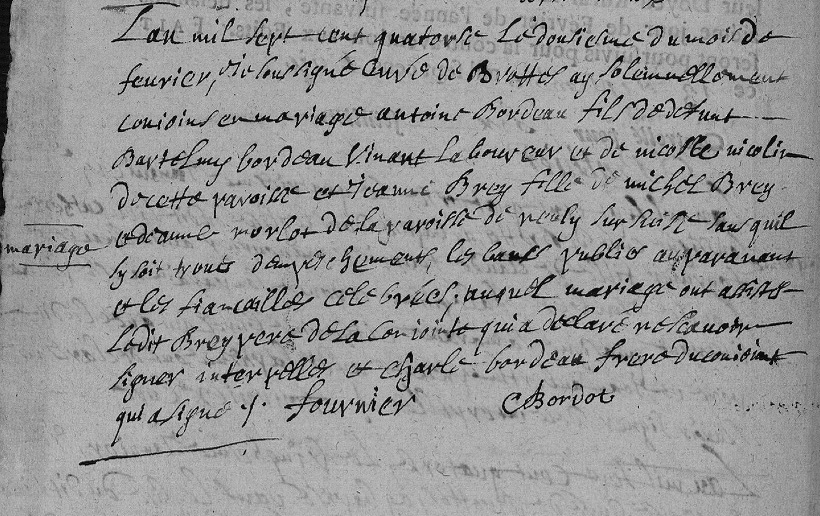 Lan mil sept cent quatorse Le dousiesme du mois de
feurier, Je soussigné curé de Brottes ay solemnellement
conioins en mariage antoine Bordeau fils de defunt
Bartelmy bordeau viuant Laboureur et de nicolle nicolin
de cette paroisse et Jeanne Brey fille de michel Brey
et de anne morlot de la paroisse de sur sans quil
mariage
sy soit trouué dempeschements, les bancs publiés auparauant
et les fiancailles celebrées. auquel mariage ont assisté
Ledit Brey pere de la Coniointe qui a declaré ne scauoir
signer interpellé et charle bordeau frere du conioint
qui a signé /. fournier CBordot